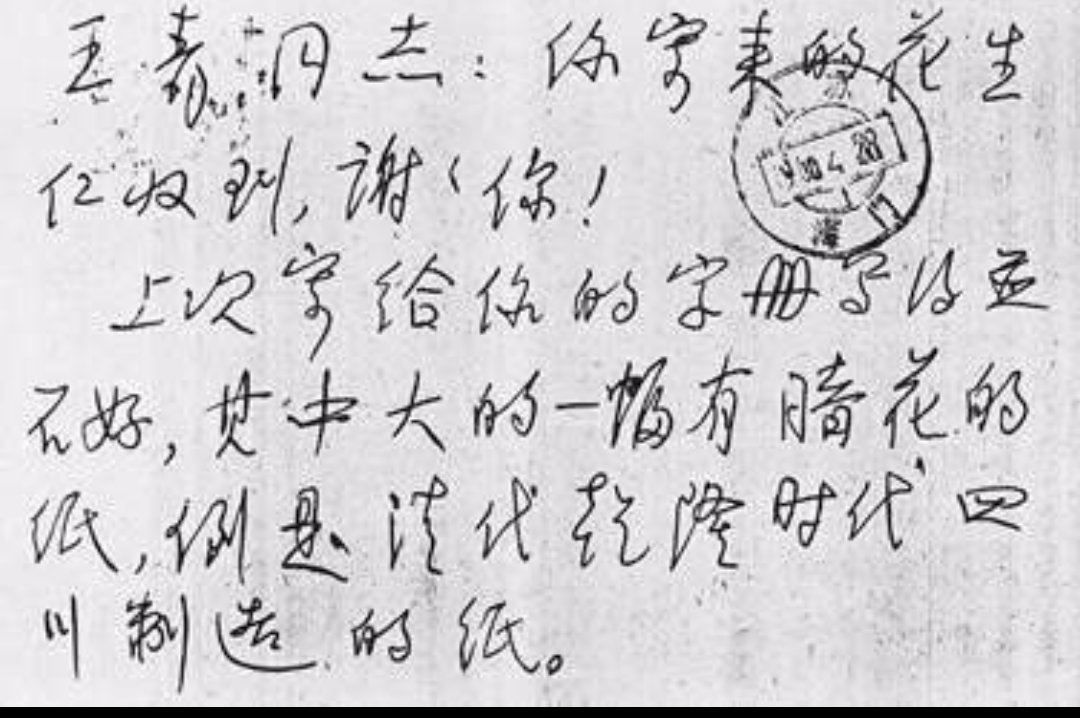 王同志：你寄来的花生
仁收到，谢々你！
上次寄给你的字册写得並
不好，其中大的一幅有暗花的
纸，倒是清代乾隆时代四
川制造的纸。
海